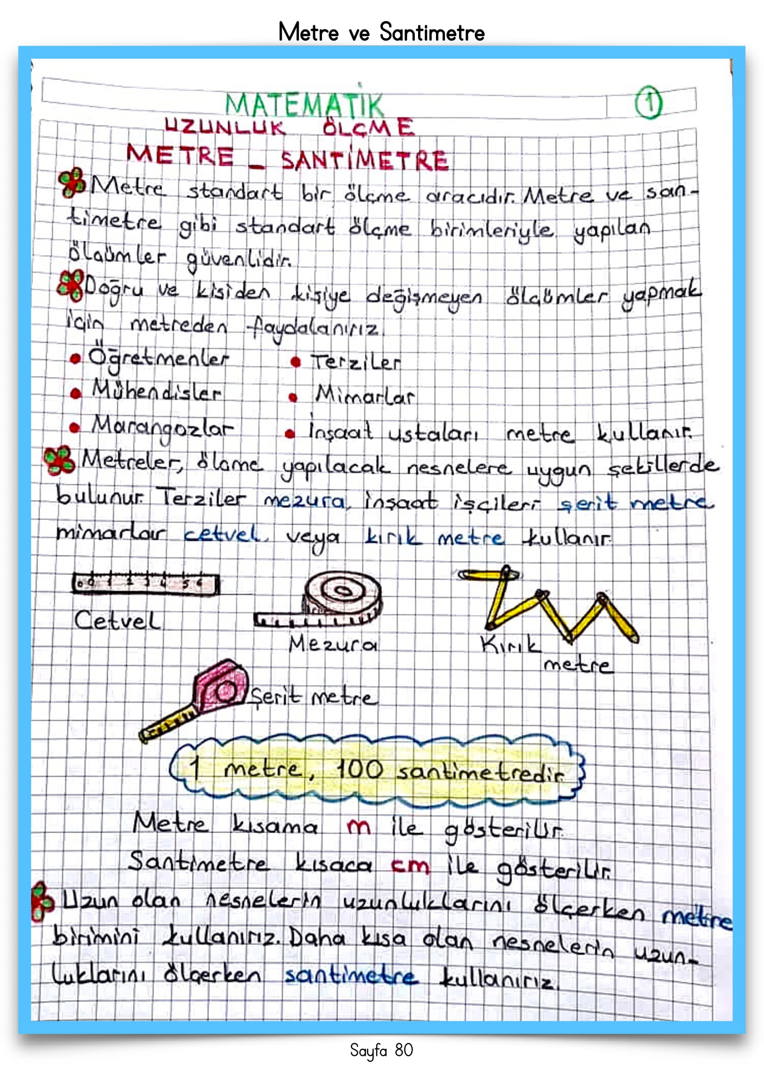 Metre ve Santimetre
MATEMATİK
1
UZUNLUK ÖLÇME
METRE _ SANTİMETRE
Metre standart bir ölçme aracıdır. Metre ve san-
timetre gibi standart ölçme birimleriyle yapılan
ölçümler güvenlidir.
Doğru ve kişiden kişiye değişmeyen ölçümler yapmak
için metreden faydalanırız.
• Öğretmenler • Terziler
• Mühendisler • Mimarlar
• Marangozlar • İnşaat ustaları metre kullanır.
Metreler, ölçme yapılacak nesnelere uygun şekillerde
bulunur. Terziler mezura, inşaat işçileri şerit metre
mimarlar cetvel, veya kırık metre kullanır.
0 1 2 3 4 5 6
Cetvel
Mezura
Kırık
metre
Şerit metre
1 metre, 100 santimetredir.
Metre kısama m ile gösterilir.
Santimetre kısaca cm ile gösterilir.
Uzun olan nesnelerin uzunluklarını ölçerken metre
birimini kullanırız. Daha kısa olan nesnelerin uzun-
luklarını ölçerken santimetre kullanırız.
Sayfa 80